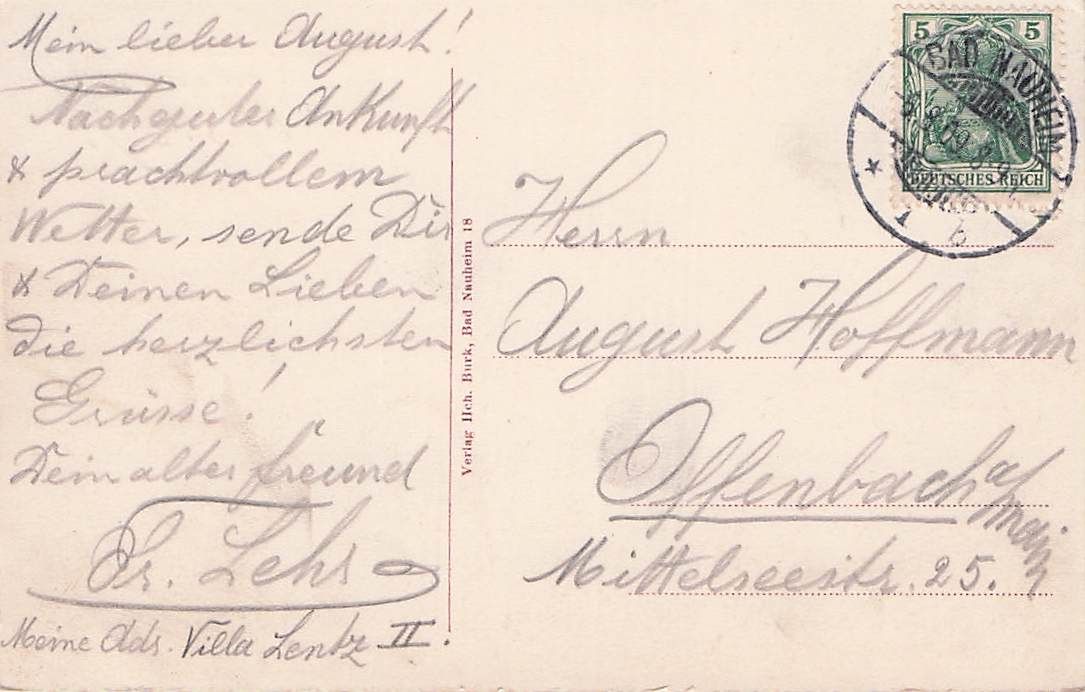 Mein lieber August!
Nach guter Ankunft
& prachtvollem
Wetter, sende Dir
& Deinen Lieben
die herzlichsten
Grüsse!
Dein alter Freund
Fr. Lehr
Meine Ads. Villa Lentz II.
Verlag Hch. Burk, Bad Nauheim 18
5 5
DEUTSCHES REICH
BAD NAUHEIM
* 1 b
Herrn
August Hoffmann
Offenbach a/Main
Mittelseestr. 25.